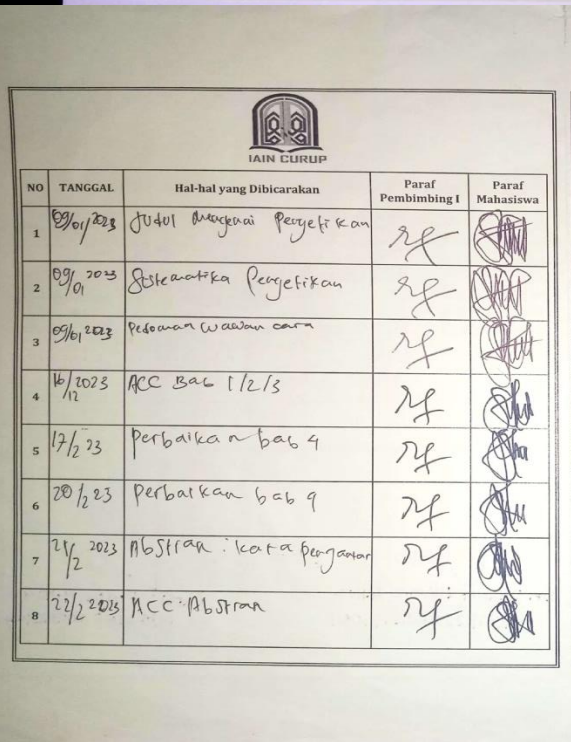 IAIN CURUP
NO TANGGAL Hal-hal yang Dibicarakan Paraf Pembimbing I Paraf Mahasiswa
1 09/01/2023 Judul mengenai Pengetikan
2 09/01 2023 Sistematika Pengetikan
3 09/01 2023 Pedoman wawancara
4 16/12 2023 ACC Bab 1/2/3
5 17/2 23 Perbaikan bab 4
6 20/2 23 Perbaikan bab 4
7 21/2 2023 Abstran : kata pengantar
8 22/2 2023 ACC Abstran